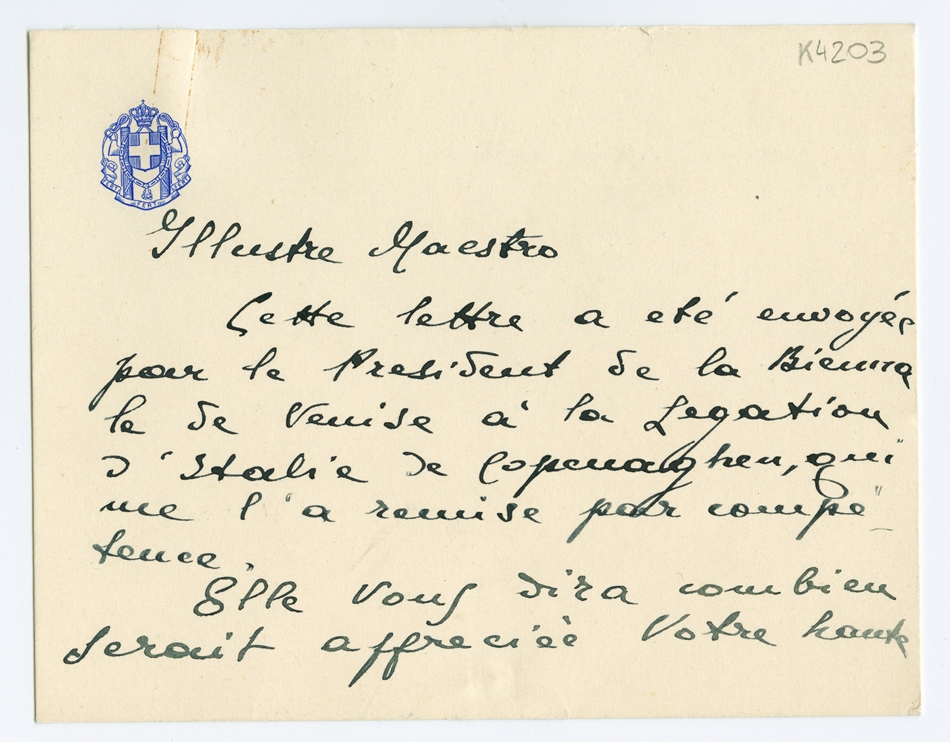 K4203
FERT FERT FERT
Illustre Maestro
Cette lettre a eté envoyée
par le President de la Bienna
le de Venise à la Legation
d'Italie de Copenaghen, qui
me l'a remise par compe-
tence.
Elle Vous dira combien
serait affreciée Votre haute